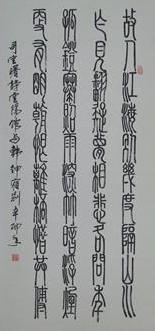 故人江海別幾度隔山川
乍見翻疑夢相悲各問年
孤燈寒照雨深竹暗浮煙
更有明朝恨離杯惜共傳
司空曙詩雲陽館与韓紳宿別辛卯年